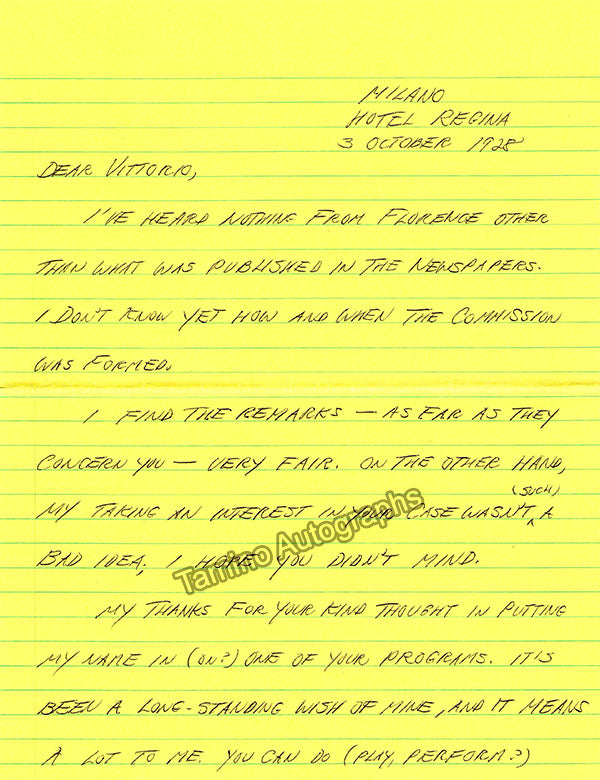 MILANO
HOTEL REGINA
3 OCTOBER 1928
DEAR VITTORIO,
I'VE HEARD NOTHING FROM FLORENCE OTHER
THAN WHAT WAS PUBLISHED IN THE NEWSPAPERS.
I DON'T KNOW YET HOW AND WHEN THE COMMISSION
WAS FORMED.
I FIND THE REMARKS — AS FAR AS THEY
CONCERN YOU — VERY FAIR. ON THE OTHER HAND,
(SUCH)
MY TAKING AN INTEREST IN YOUR CASE WASN'T A
BAD IDEA; I HOPE YOU DIDN'T MIND.
Tamino Autographs
MY THANKS FOR YOUR KIND THOUGHT IN PUTTING
MY NAME IN (ON?) ONE OF YOUR PROGRAMS. IT IS
BEEN A LONG-STANDING WISH OF MINE, AND IT MEANS
A LOT TO ME. YOU CAN DO (PLAY, PERFORM?)